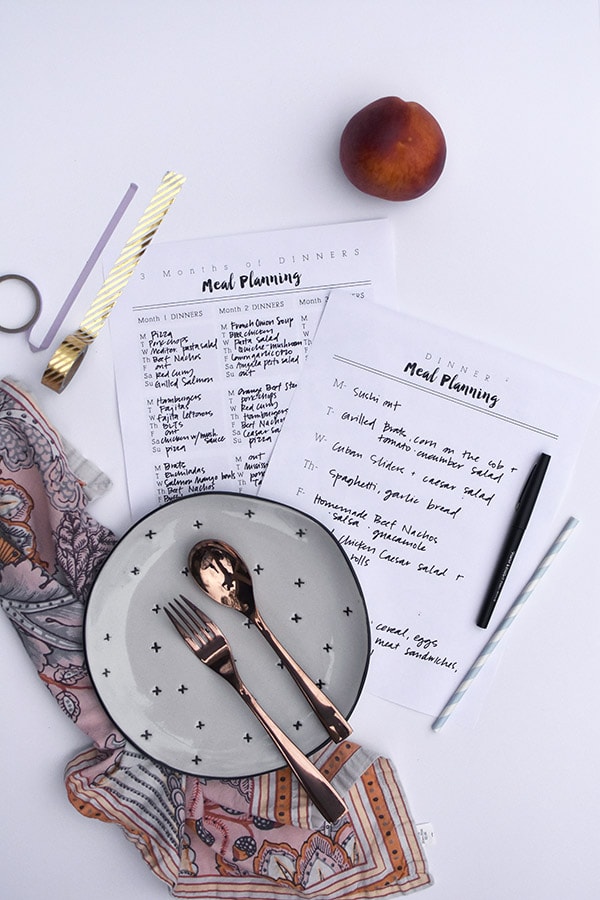 3 Months of DINNERS
Meal Planning
Month 1 DINNERS
M Pizza
T Pork chops
W Mediterr. pasta salad
Th Beef Nachos
F out
Sa Red Curry
Su Grilled Salmon
M Hamburgers
T Fajitas
W Fajita leftovers
Th BLTs
F out
Sa chicken w/ mush
sauce
Su pizza
M Brats
T Enchiladas
W Salmon Mango bowls
Th Beef Nachos
Month 2 DINNERS
M French Onion Soup
T BBQ chicken
W Pasta Salad
Th Quiche-mushroom
F
Sa Angela pasta salad
Su
M Orange Beef Stew
T porkchops
W Red Curry
Th Hamburgers
F Beef Nach
Sa Caesar Sa
Su pizza
M out
T
W
Th
DINNER
Meal Planning
M- Sushi out
T- Grilled Brats, corn on the cob +
tomato-cucumber salad
W- Cuban Sliders + caesar salad
Th- Spaghetti, garlic bread
F- Homemade Beef Nachos
·salsa ·guacamole
Chicken Caesar salad +
rolls
, cereal, eggs
meat sandwiches,